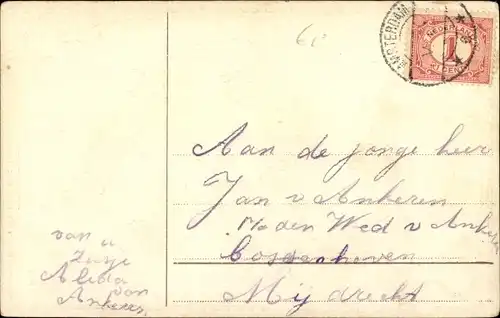 AMSTERDAM
NEDERLAND
1
CENT
Aan de jonge heer
Jan v Ankeren
Moden Wed v Anke
Cossenhoven
Mijdrecht
van u
zusje
Alida
van
Ankeren